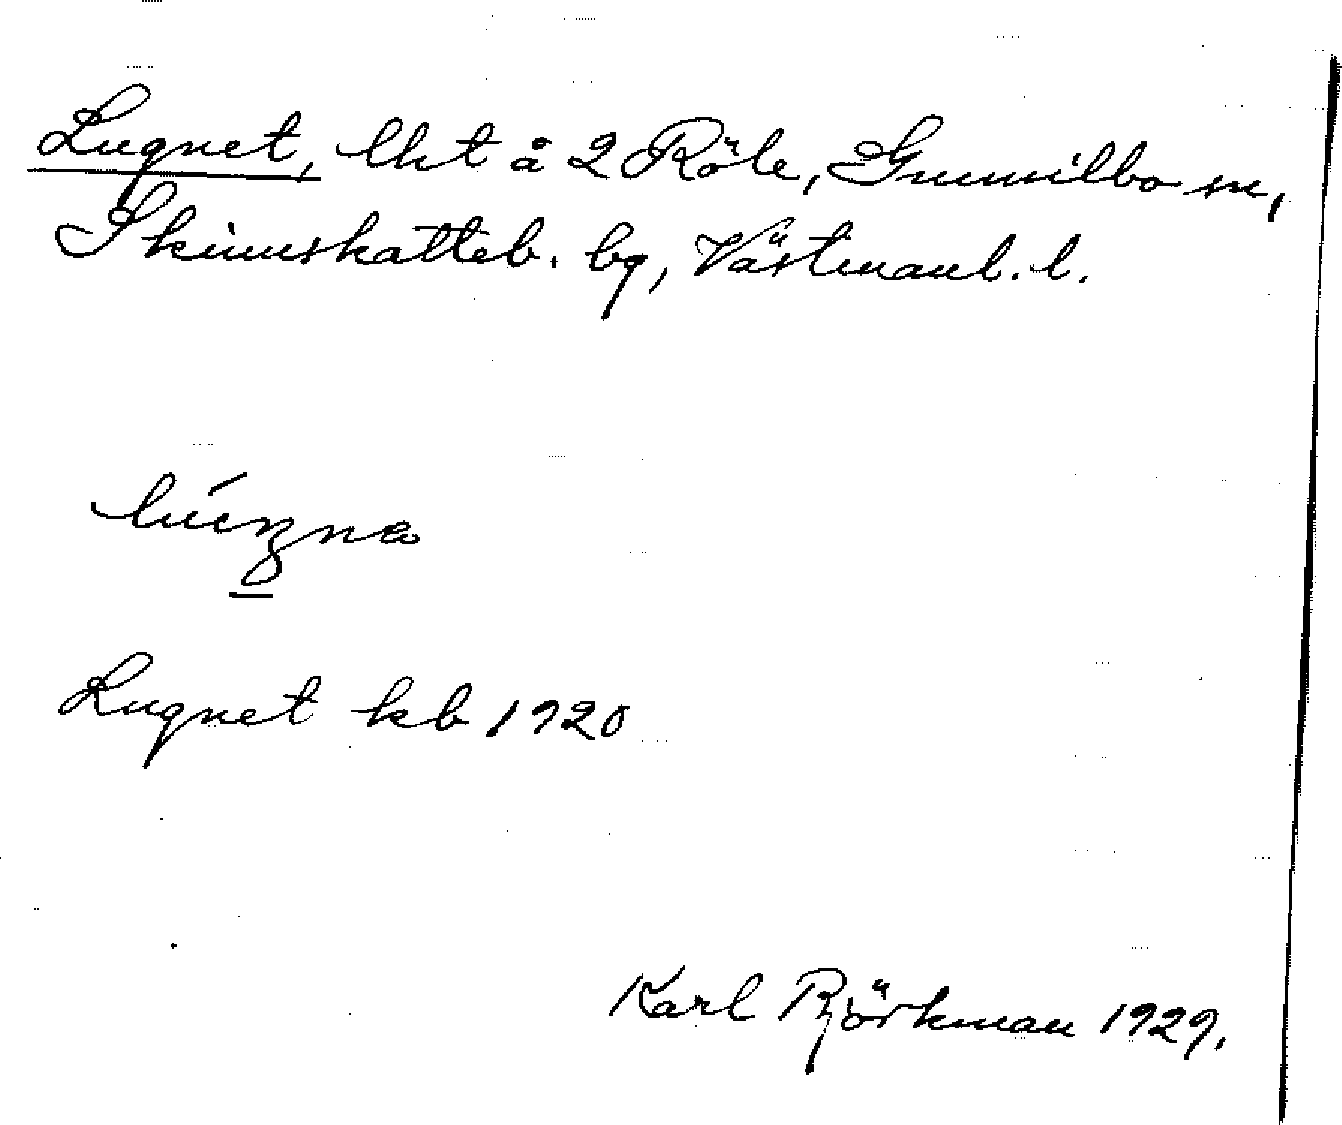 Lugnet, lht å 2 Röle, Gunnilbo sn,
Skinnskatteb. bg, Västmanl. l.
Lugnet kb 1920
Karl Björkman 1929.